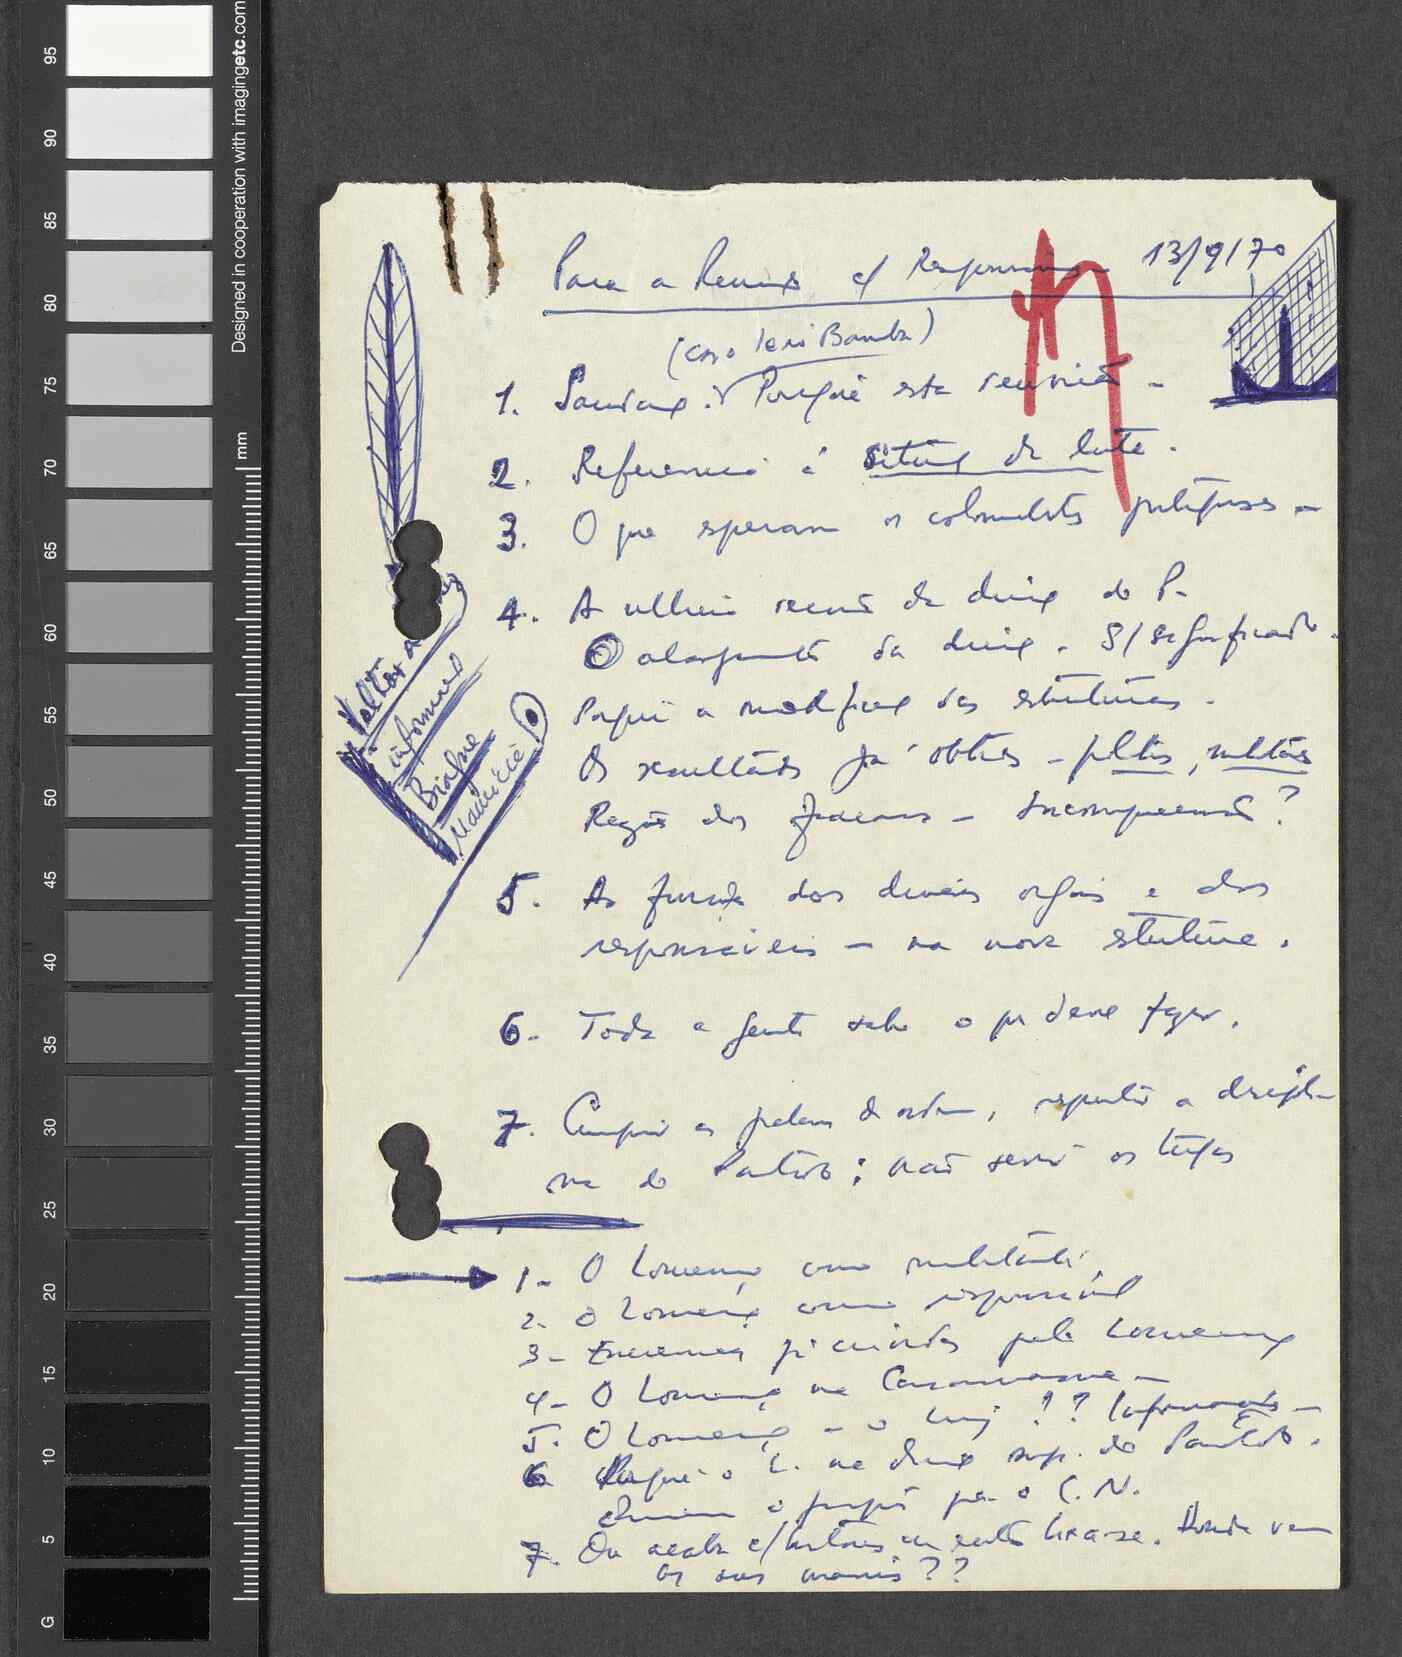 Para a Reunião c/ Responsáveis 13/9/70
(caso Leni Bamba)
1. Saudação. Porquê esta reunião -
2. Referência à situação da luta.
3. O que esperam os colonialistas portugueses -
4. A última reunião da direcção do P.
O alargamento da direcção. S/ significado.
Porquê a modificação das estruturas.
Os resultados já obtidos - políticos, militares
Reacção dos - Incompreensão?
5. As funções dos diversos orgãos e dos
responsáveis - na nova estrutura.
6. Toda a gente sabe o que deve fazer.
7. Cumprir as palavras de ordem, respeitar a discipli-
na do Partido; não servir os tugas
Voltar a
informar
Biafra
Maurício
1- O Lourenço como militante,
2. O Lourenço como responsável
3- já criadas pelo Lourenço
4- O Lourenço na Casamansa -
5. O Lourenço - o ?? Informações -
6 Porquê o L. na direcção sup. do Partido.
Quem o propôs para o C.N.
7. Ou acaba c/ histórias ou então lixa-se. Aonde vão
as suas manias??
Designed in cooperation with imagingetc.com
mm
95
90
85
80
75
70
65
60
55
50
45
40
35
30
25
20
15
10
5
G